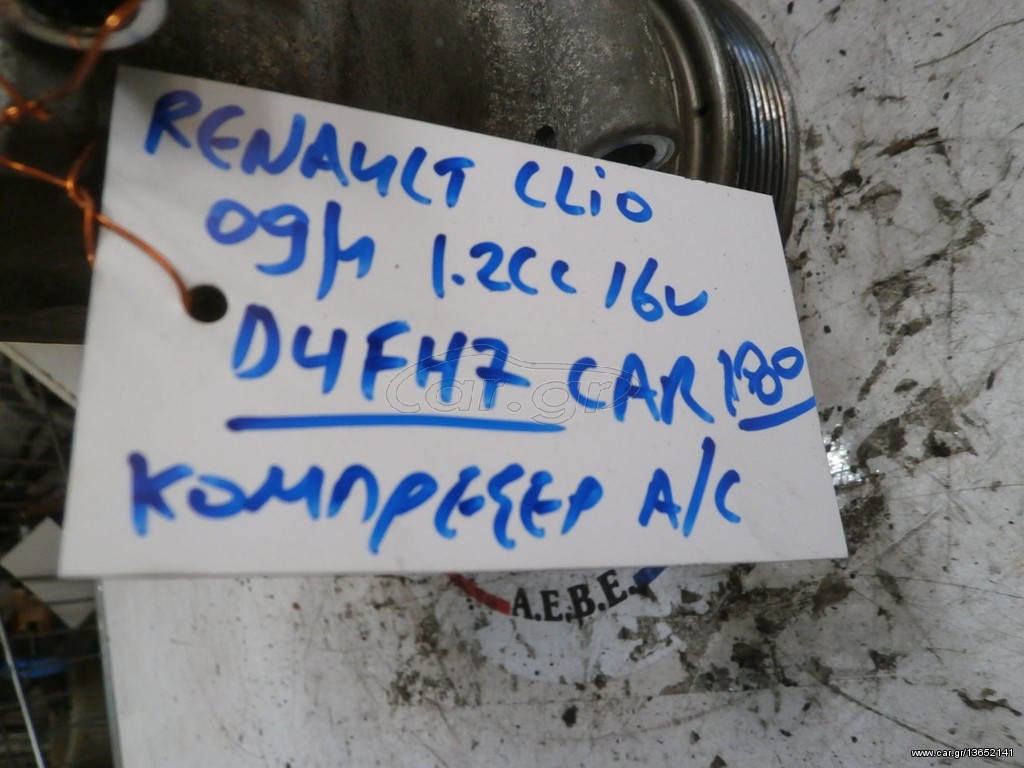 RENAULT CLiO
09/Μ 1.2CC 16V
D4FH7 CAR 180
ΚΟΜΠΡΕΣΕΡ A/C
car.gr
A.E.B.E.
www.car.gr/13652141